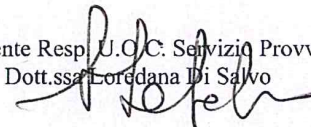 ente Resp. U.O.C. Servizio Provv
Dott.ssa Loredana Di Salvo